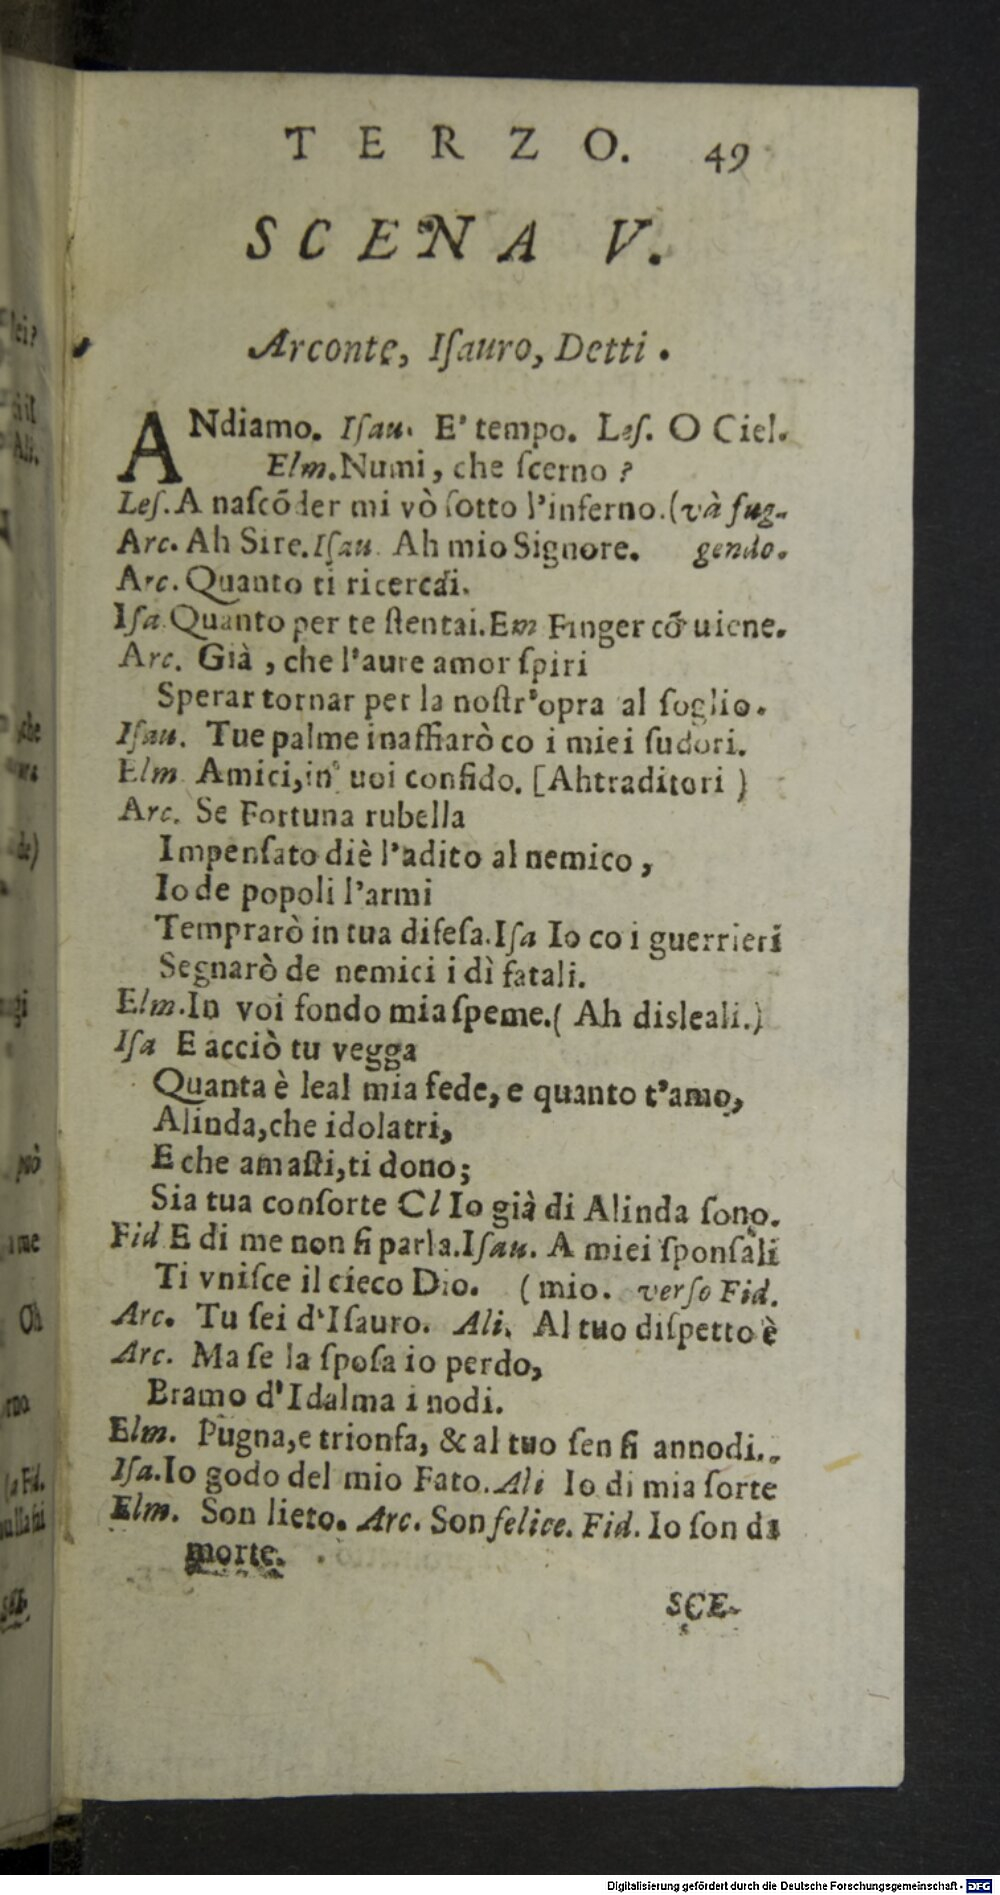 TERZO. 49
SCENA V.
Arconte, Iſauro, Detti.
ANdiamo. Iſau. E' tempo. Leſ. O Ciel.
Elm. Numi, che ſcerno?
Leſ. A naſcōder mi vò ſotto l'inferno. (và fug-
Arc. Ah Sire. Iſau. Ah mio Signore. gendo.
Arc. Quanto ti ricercai.
Iſa. Quanto per te ſtentai. Em Finger cō uiene.
Arc. Già, che l'aure amor ſpiri
Sperar tornar per la noſtr'opra al ſoglio.
Iſau. Tue palme inaffiarò co i miei ſudori.
Elm Amici, in uoi confido. [Ah traditori )
Arc. Se Fortuna rubella
Impenſato diè l'adito al nemico,
Io de popoli l'armi
Temprarò in tua difeſa. Iſa Io co i guerrieri
Segnarò de nemici i dì fatali.
Elm. In voi fondo mia ſpeme. ( Ah disleali. )
Iſa E acciò tu vegga
Quanta è leal mia fede, e quanto t'amo,
Alinda, che idolatri,
E che amaſti, ti dono;
Sia tua conſorte Cl Io già di Alinda ſono.
Fid E di me non ſi parla. Iſau. A miei ſponſali
Ti vniſce il cieco Dio. (mio. verſo Fid.
Arc. Tu ſei d'Iſauro. Ali. Al tuo diſpetto è
Arc. Ma ſe la ſpoſa io perdo,
Bramo d'Idalma i nodi.
Elm. Pugna, e trionfa, & al tuo ſen ſi annodi..
Iſa. Io godo del mio Fato. Ali Io di mia ſorte
Elm. Son lieto. Arc. Son felice. Fid. Io ſon di
morte.
SCE-
Digitalisierung gefördert durch die Deutsche Forschungsgemeinschaft - DFG